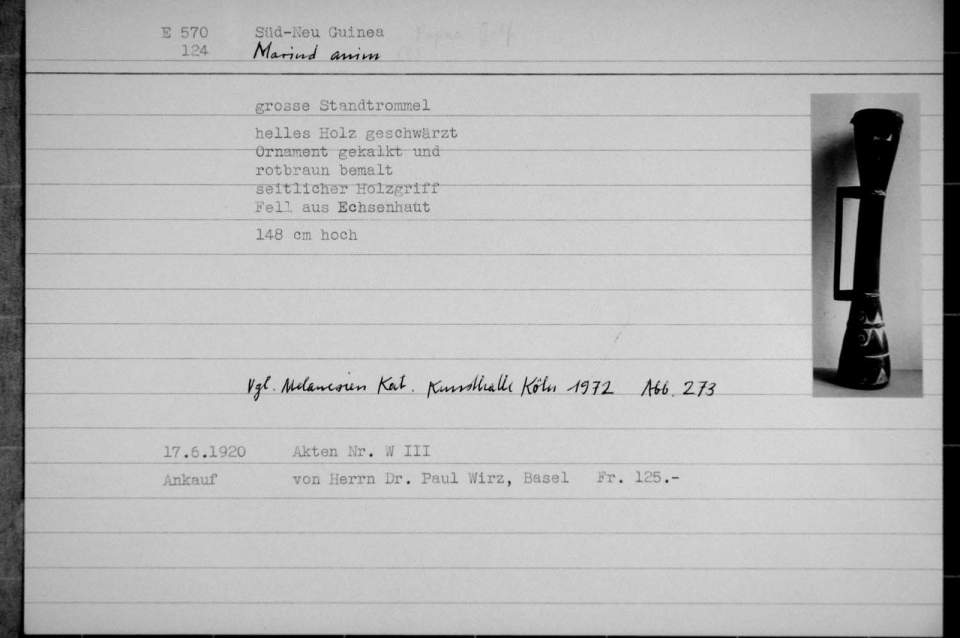 E 570 Süd-Neu Guinea
124 Marind anim
grosse Standtrommel
helles Holz geschwärzt
Ornament gekalkt und
rotbraun bemalt
seitlicher Holzgriff
Fell aus Echsenhaut
148 cm hoch
Vgl. Melanesien Kat. Kunsthalle Köln 1972 Abb. 273
17.6.1920 Akten Nr. W III
Ankauf von Herrn Dr. Paul Wirz, Basel Fr. 125.-